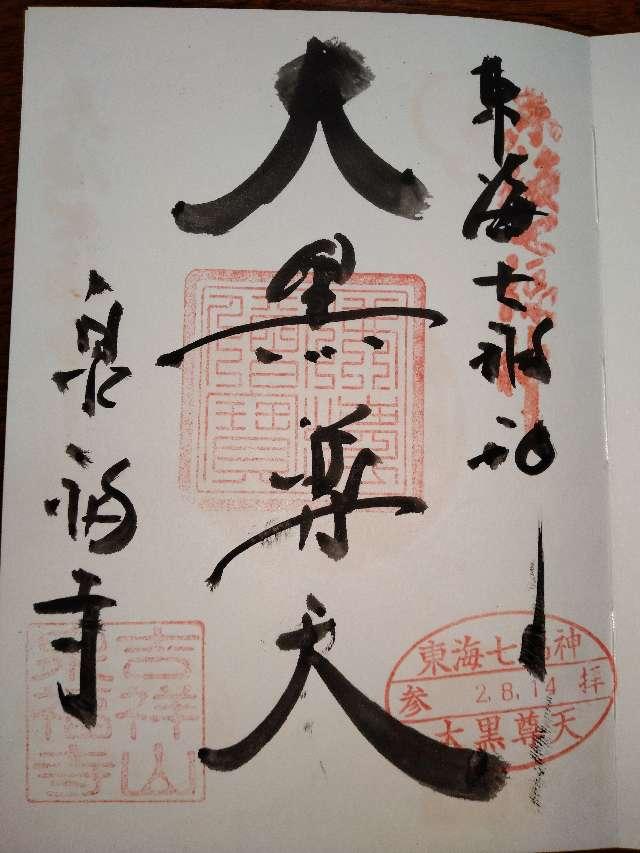 東海七福神
大黒尊天
泉福寺
東海七福神
参 2.8.14 拝
大黒尊天
吉祥山
泉福寺